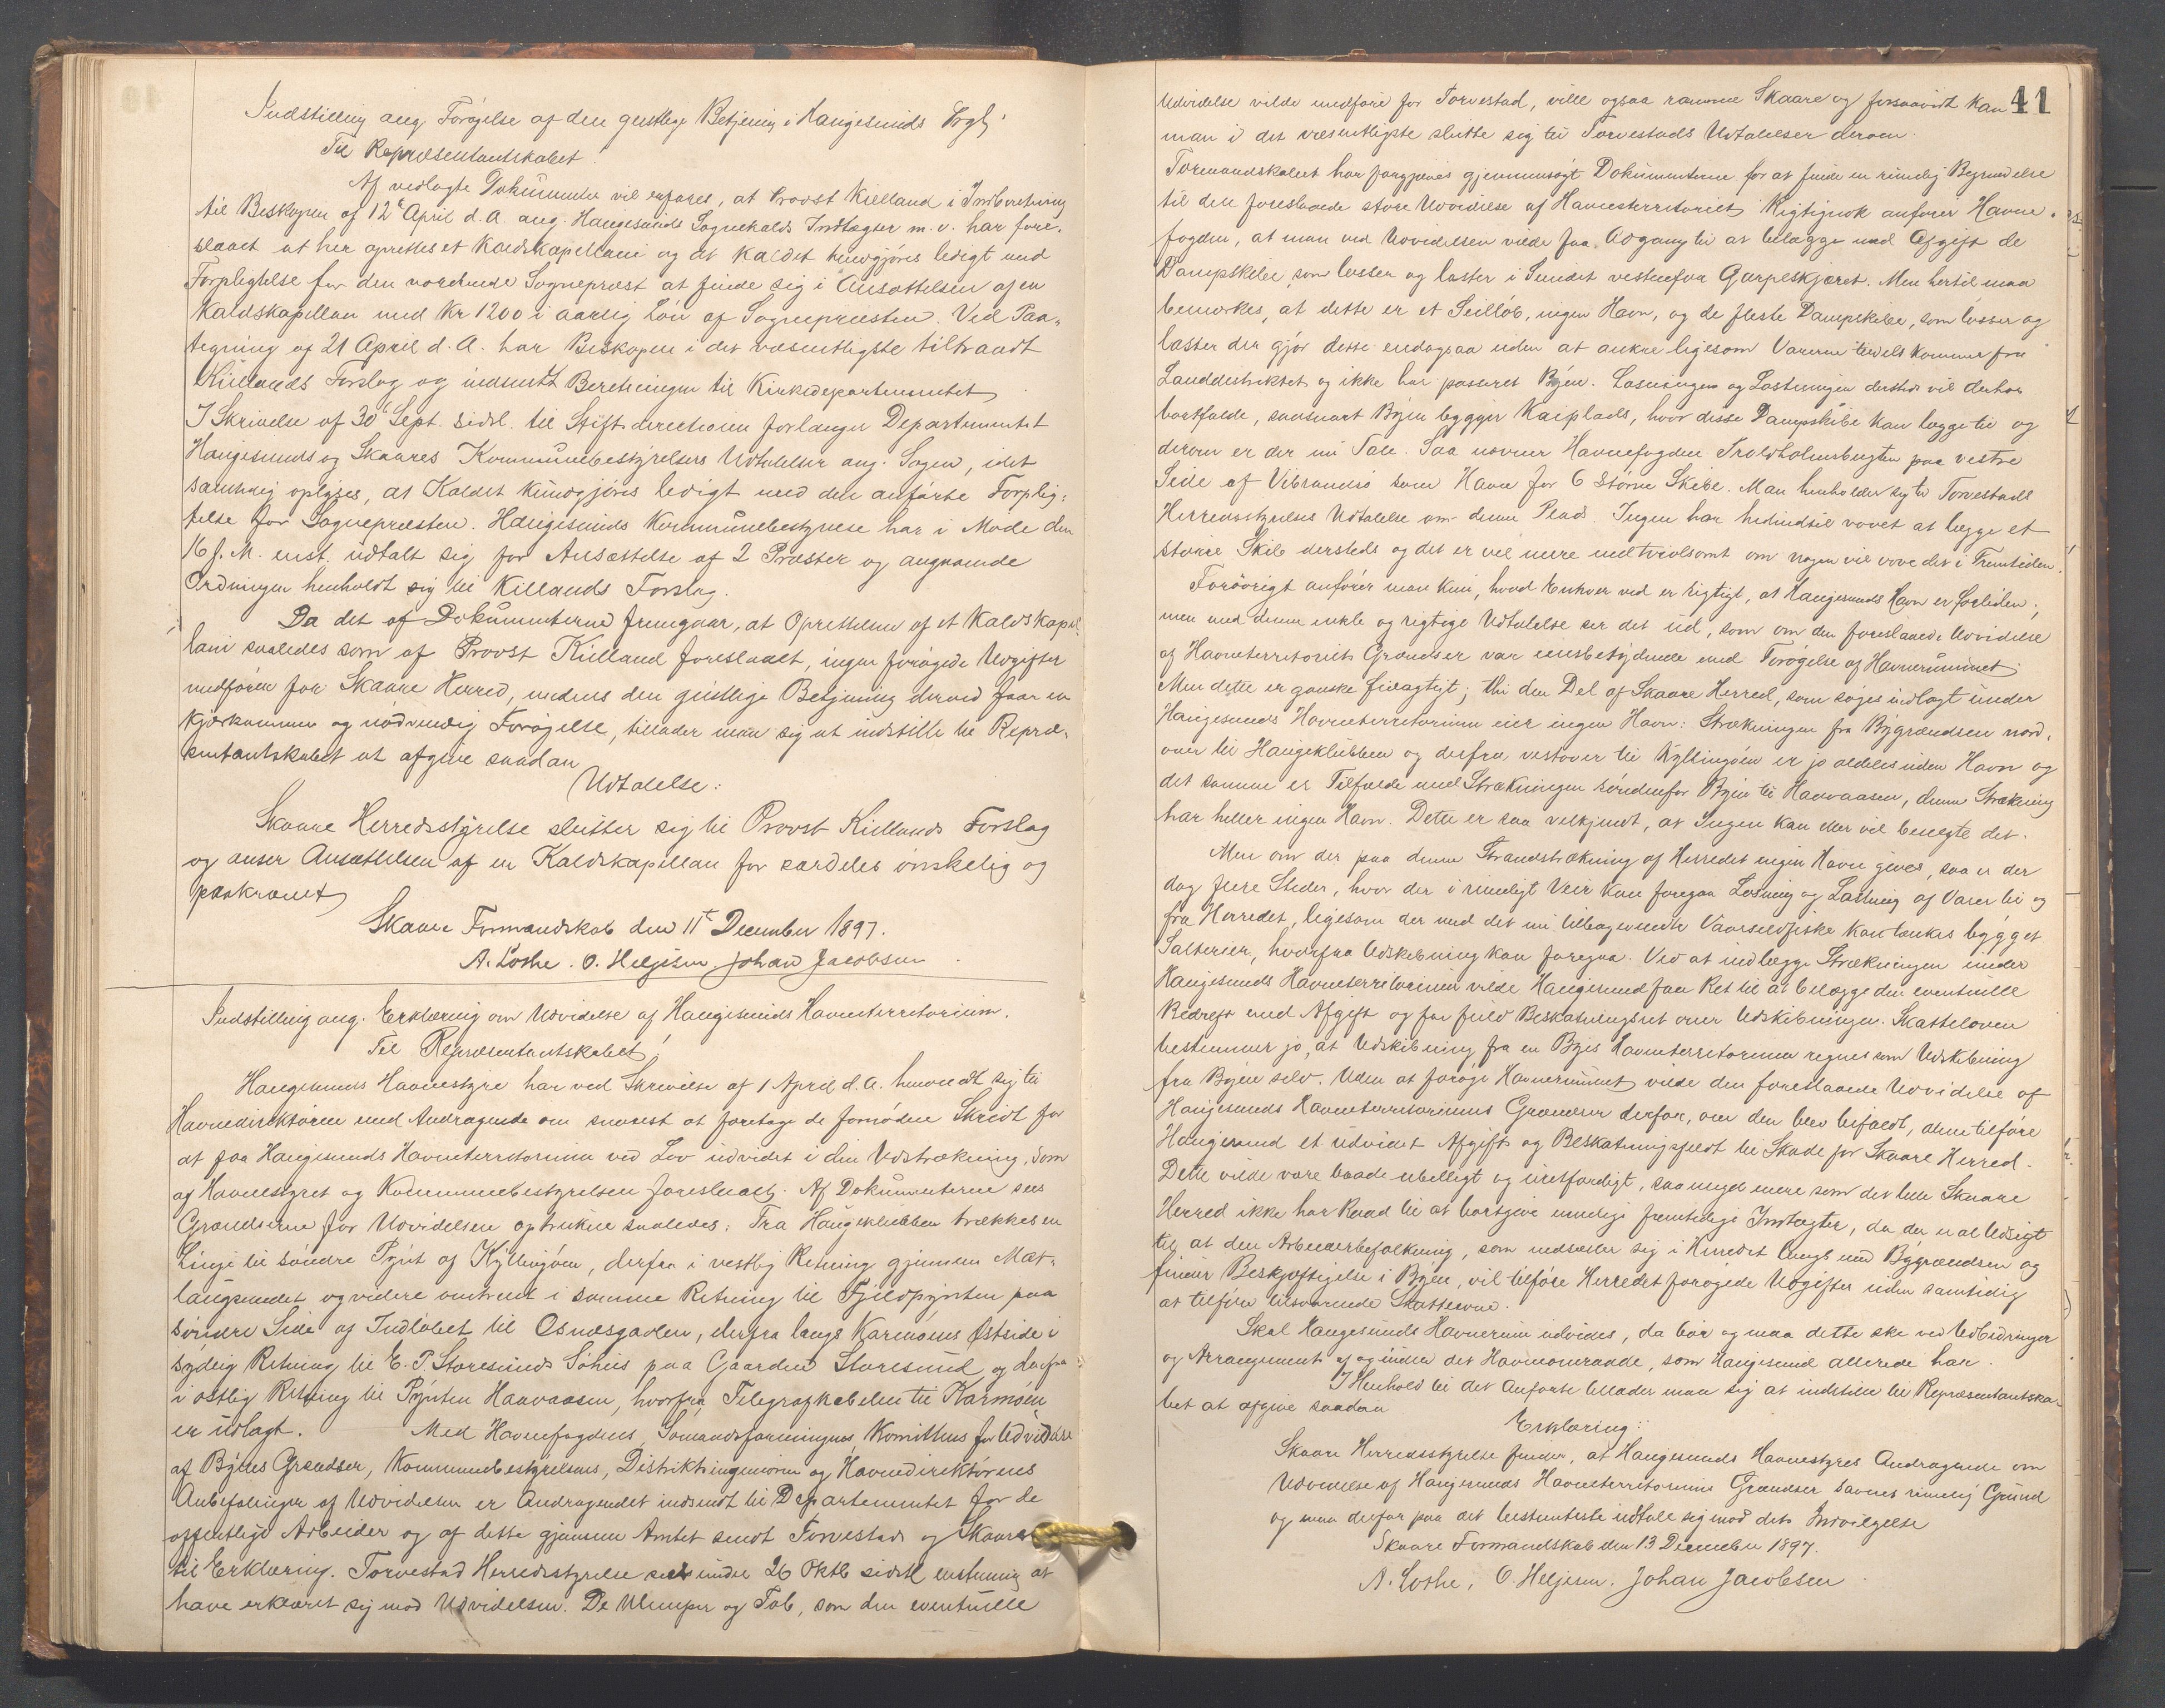 Indstilling ang. Forøgelse af den geistlige Betjening i Haugesunds Prgj.
Til Repræsentantskabet!
Af vedlagte Dokumenter vil erfares, at Provst Kielland i Indberetning
til Biskopen af 12te April d.A. ang. Haugesunds Sognekalds Indtægter m.v. har fore-
slaaet at her oprettes et Kaldskapellani og at Kaldet kundgjøres ledigt med
Forpligtelse for den vordende Sogneprest at finde sig i Ansættelsen af en
Kaldskapellan med Kr 1200 i aarlig Løn af Sognepresten. Ved Paa-
tegning af 21 April d.A. har Biskopen i det væsentligste tiltraadt
Kiellands Forslag og indsendt Beretningen til Kirkedepartementet
I Skrivelse af 30te Sept. sidstl. til Stiftsdirectionen forlanger Departementet
Haugesunds og Skaares Kommunebestyrelsers Udtalelser ang. Sagen, idet
samtidig oplyses, at Kaldet kundgjøres ledigt med den anførte Forplig-
telse for Sognepresten. Haugesunds Kommunebestyrelse har i Møde den
16 f.M. enst. udtalt sig for Ansættelse af 2 Præster og angaaende
Ordningen henholdt sig til Killands Forslag.
Da det af Dokumenterne fremgaar, at Oprettelsen af et Kaldskapel-
lani saaledes som af Provst Kielland foreslaaet, ingen forøgede Udgifter
medfører for Skaare Herred, medens den geistlige Betjening derved faar en
kjærkommen og nødvendig Forøgelse, tillader man sig at indstille til Repræ-
sentantskabet at afgive saadan
Udtalelse:
Skaare Herredsstyrelse slutter sig til Provst Kiellands Forslag
og anser Ansættelsen af en Kaldskapellan for særdeles ønskelig og
paakrævet
Skaare Formandskab den 11te December 1897.
A. Lothe. O. Helgesen Johan Jacobsen
Indstilling ang. Erklæring om Udvidelse af Haugesunds Havneterritorium.
Til Repræsentantskabet!
Haugesunds Havnestyre har ved Skrivelse af 1 April d.A. henvendt sig til
Havnedirektøren med Andragende om snarest at foretage de fornødne Skridt for
at faa Haugesunds Havneterritorium ved Lov udvidet i den Udstrækning, som
af Havnestyret og Kommunebestyrelsen foreslaaet. Af Dokumenterne sees
Grændserne for Udvidelsen optrukne saaledes: Fra Haugeklubben trækkes en
Linje til søndre Pynt af Kyllingøen, derfra i vestlig Retning gjennem Mæt-
laugsundet og videre omtrent i samme Retning til Fjeldpynten paa
søndre Side af Indløbet til Osnæsgavlen, derfra langs Karmøens Østside i
sydlig Retning til E. T. Storesunds Søhus paa Gaarden Storesund og derfra
i østlig Retning til Pynten Haavaasen, hvorfra Telegrafkabelen til Karmøen
er udlagt. Med Havnefogdens, Sømandsforeningens, Komitteens for Udvidelse
af Byens Grændser, Kommunebestyrelsens, Distriktsingeniøren og Havnedirektørens
Anbefalinger af Udvidelsen er Andragendet indsendt til Departementet for de
offentlige Arbeider og af dette gjennem Amtet sendt Torvestad og Skaare
til Erklæring. Torvestad Herredsstyrelse sees under 26 Oktb sidstl enstemmig at
have erklæret sig mod Udvidelsen. De Ulemper og Tab, som den eventuelle
41
Udvidelse vilde medføre for Torvestad, ville ogsaa ramme Skaare og forsaavidt kan
man i det væsentligste slutte sig til Torvestads Udtalelser derom.
Formandskabet har forgjæves gjennemsøgt Dokumenterne for at finde en rimelig Begrundelse
til den foreslaaede store Udvidelse af Havneterritoriet. Rigtignok anfører Havne-
fogden, at man ved Udvidelsen vilde faa Adgang til at belægge med Afgift de
Dampskibe, som losser og laster i Sundet vestenfra Garpeskjæret. Men hertil maa
bemærkes, at dette er et Seilløb, ingen Havn, og de fleste Dampskibe, som losser og
laster der gjør dette endogsaa uden at ankre ligesom Varerne tildels kommer fra
Landdistriktet og ikke har passeret Byen. Losningen og Lastningen dersteds vil derhos
bortfalde, saasnart Byen bygger Kaiplads, hvor disse Dampskibe kan lægge til og
derom er der nu Tale. Saa nævner Havnefogden Troldholmbugten paa vestre
Side af Vibrandsø som Havn for 6 større Skibe. Man henholder sig til Torvestads
Herredsstyrelses Udtalelse om denne Plads. Ingen har hidindtil vovet at lægge et
større Skib dersteds og det er vel mere end tvivlsomt om nogen vil vove det i Fremtiden.
Forøvrigt anfører man kun, hvad Enhver ved er rigtigt, at Haugesunds Havn er forliden;
men med denne enkle og rigtige Udtalelse ser det ud, som om den foreslaaede Udvidelse
af Havneterritoriets Grændser var eensbetydende med Forøgelse af Havnerummet.
Men dette er ganske feilagtigt; thi den Del af Skaare Herred, som søges indlagt under
Haugesunds Havneterritorium eier ingen Havn: Strækningen fra Bygrændsen nord-
over til Haugeklubben og derfra vestover til Kyllingøen er jo aldeles uden Havn og
det samme er Tilfælde med Strækningen søndenfor Byen til Haavaasen, denne Strækning
har heller ingen Havn. Dette er saa velkjendt, at Ingen kan eller vil benægte det.
Men om der paa denne Strandstrækning af Herredet ingen Havn gives, saa er der
dog flere Steder, hvor der i rimeligt Veir kan foregaa Losning og Lastning af Varer til og
fra Herredet, ligesom der med det nu tilbagevendte Vaarsildfiske kan tænkes bygget
Salterier, hvorfra Udskibning kan foregaa. Ved at indlægge Strækningen under
Haugesunds Havneterritorium vilde Haugesund faa Ret til at belægge den eventuelle
Bedrift med Afgift og faa fuld Beskatningsret over Udskibningen. Skatteloven
bestemmer jo, at Udskibning fra en Byes Havneterritorium regnes som Udskibning
fra Byen selv. Uden at forøge Havnerummet vilde den foreslaaede Udvidelse af
Haugesunds Havneterritoriums Grændser derfor, om den blev bifaldt, alene tilføre
Haugesund et udvidet Afgifts og Beskatningsfeldt til Skade for Skaare Herred.
Dette vilde være baade ubilligt og uretfærdigt, saa meget mere som det lille Skaare
Herred ikke har Raad til at bortgive mulige fremtidige Indtægter, da der er al Udsigt
til at den Arbeiderbefolkning, som nedsætter sig i Herredet langs med Bygrændsen og
finder Beskjæftigelse i Byen, vil tilføre Herredet forøgede Udgifter uden samtidig
at tilføre tilsvarende Skatteevne.
Skal Haugesunds Havnerum udvides, da bør og maa dette ske ved Udbedringer
og Arrangement af og inden det Havneomraade, som Haugesund allerede har.
I Henhold til det Anførte tillader man sig at indstille til Repræsentantska-
bet at afgive saadan
Erklæring:
Skaare Herredsstyrelse finder, at Haugesunds Havnestyres Andragende om
Udvidelse af Haugesunds Havneterritoriums Grændser savner rimelig Grund
og maa derfor paa det bestemteste udtale sig mod dets Indvilgelse
Skaare Formandskab den 13 December 1897.
A. Lothe, O. Helgesen. Johan Jacobsen